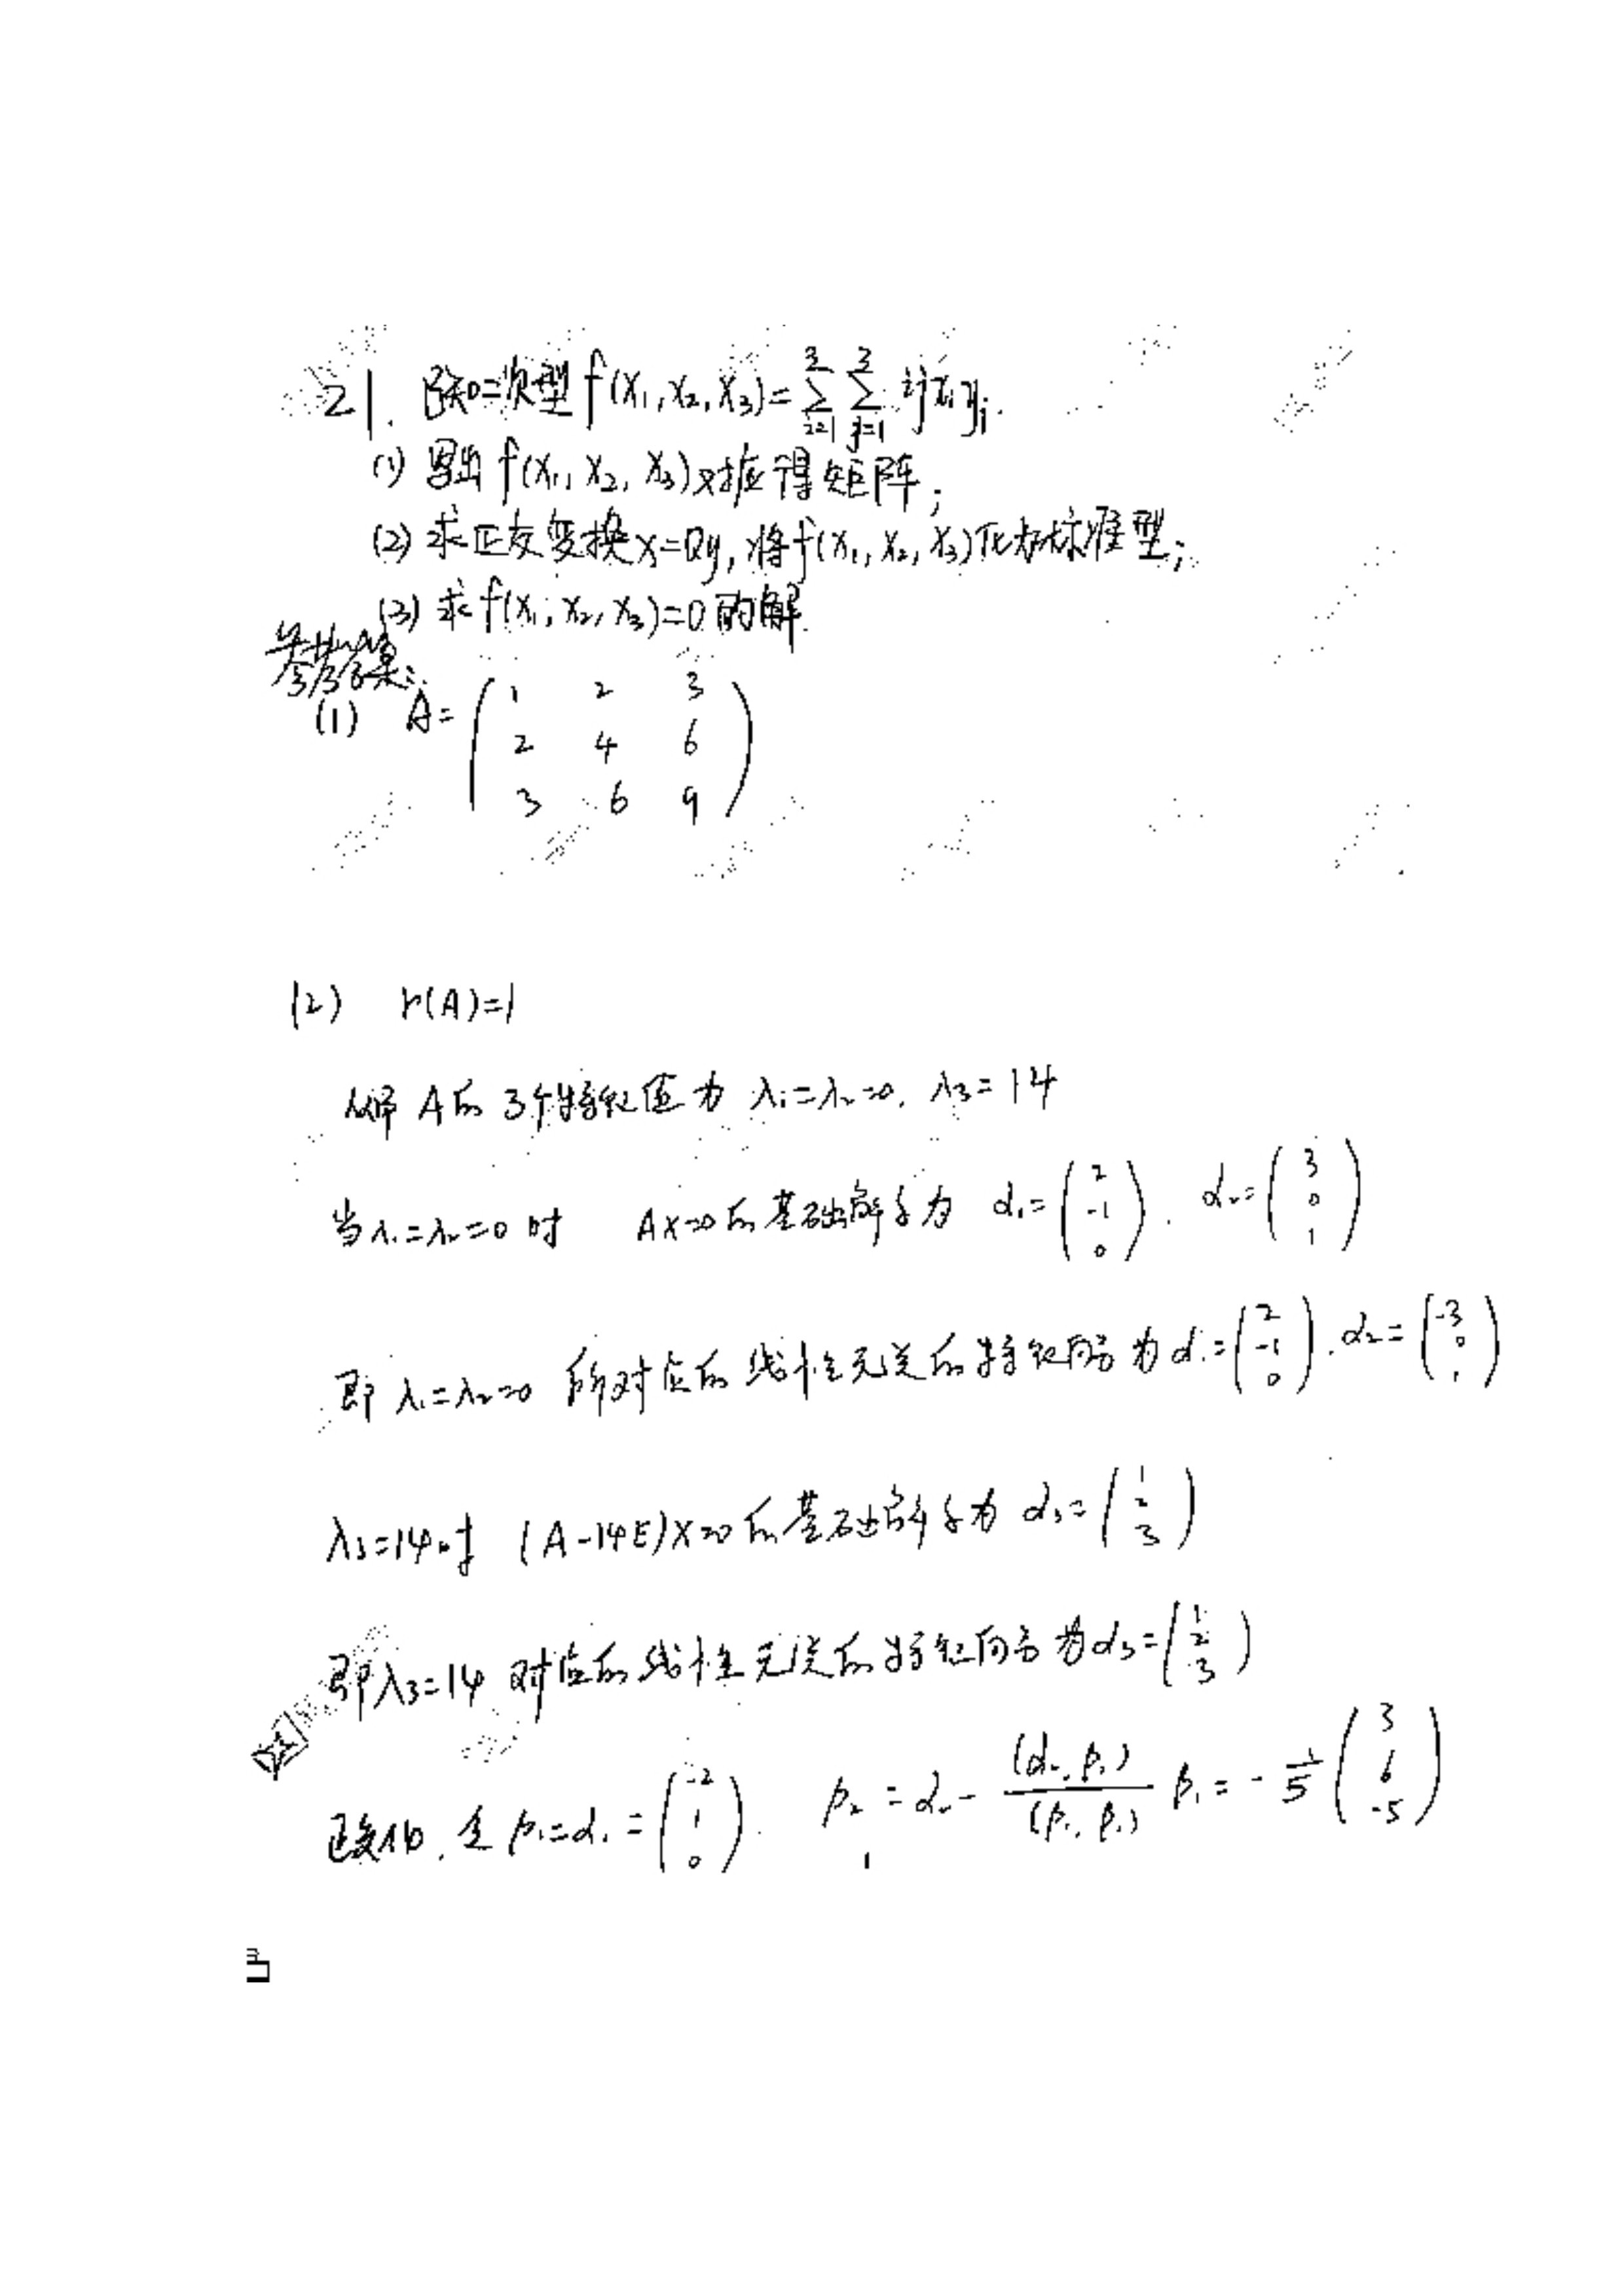 21. 已知二次型 f(x₁,x₂,x₃)=∑_{i=1}^{3}∑_{j=1}^{3} ijxᵢyⱼ.
(1) 写出 f(x₁,x₂,x₃)对应得矩阵;
(2) 求正交变换x=Qy,将f(x₁,x₂,x₃)化为标准型;
(3) 求f(x₁,x₂,x₃)=0的解.
参考答案:
(1) A=(1 2 3; 2 4 6; 3 6 9)
(2) r(A)=1
A的3个特征值为 λ₁=λ₂=0. λ₃=14
当λ₁=λ₂=0时 Ax=0的基础解系为 α₁=(2; -1; 0). α₂=(3; 0; 1)
即 λ₁=λ₂=0 所对应的线性无关的特征向量为α₁=(2; -1; 0). α₂=(-3; 0; 1)
λ₃=14时 (A-14E)X=0的基础解系为 α₃=(1; 2; 3)
即λ₃=14 对应的线性无关的特征向量为α₃=(1; 2; 3)
正交化. 令β₁=α₁=(-2; 1; 0). β₂=α₂-(α₂,β₁)/(β₁,β₁) β₁=-1/5(3; 6; -5)